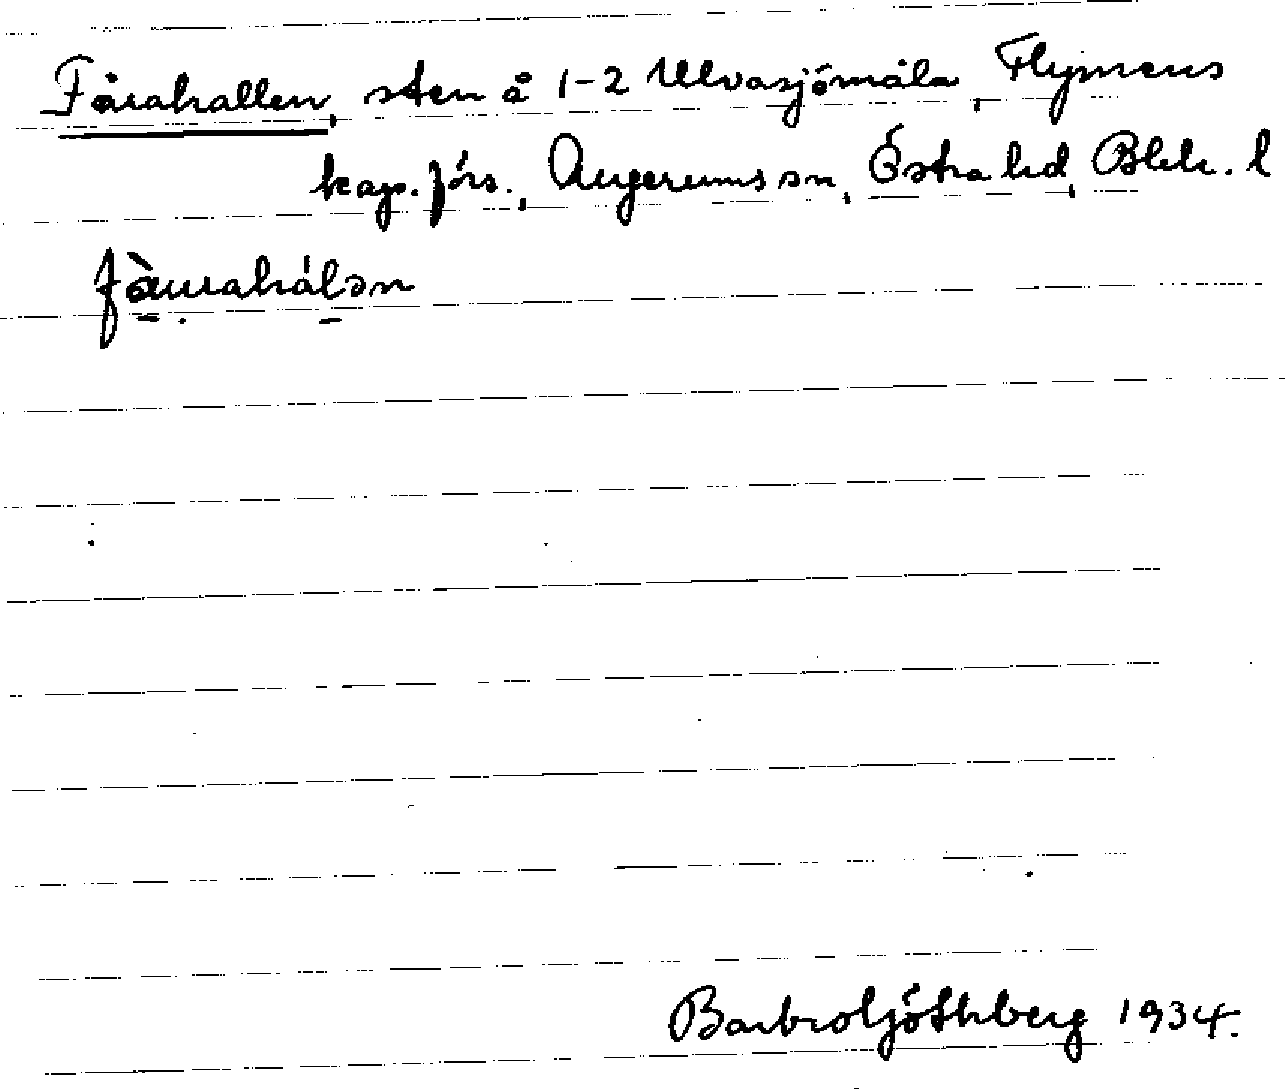 Fårahallen, sten å 1-2 Ulvasjömåla, Flymens
kap. förs., Augerums sn, Östra hd, Blek. l
fàurahálǝn
Barbro Göthberg 1934.